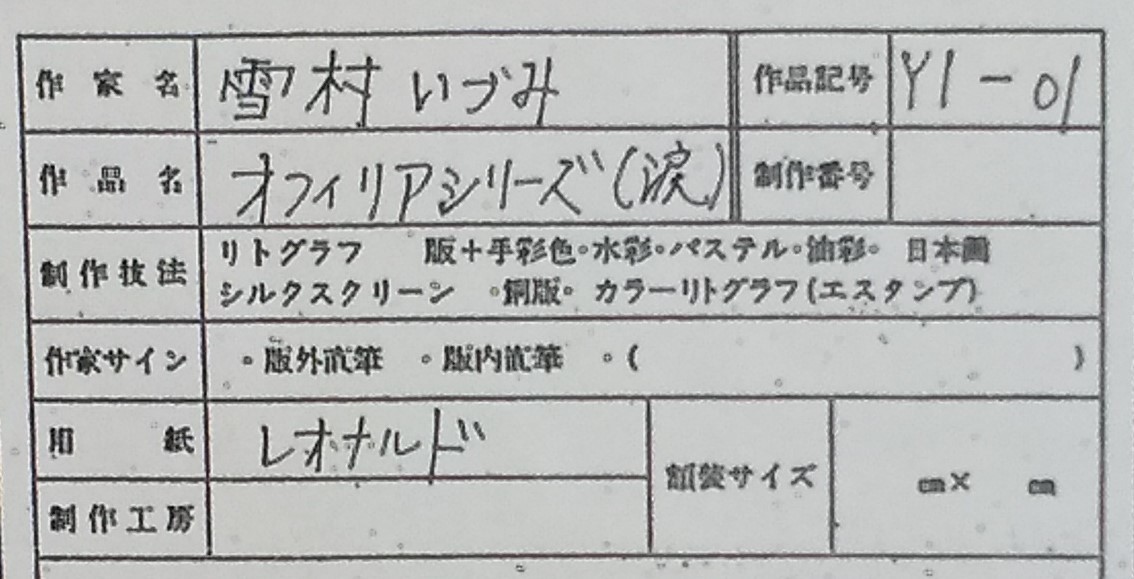 作家名 雪村いづみ 作品記号 YI-01
作品名 オフィリアシリーズ(涙) 制作番号
制作技法 リトグラフ 版+手彩色・水彩・パステル・油彩・ 日本画
シルクスクリーン ・銅版・ カラーリトグラフ(エスタンプ)
作家サイン ・版外直筆 ・版内直筆 ・( )
用紙 レオナルド
額装サイズ cm× cm
制作工房